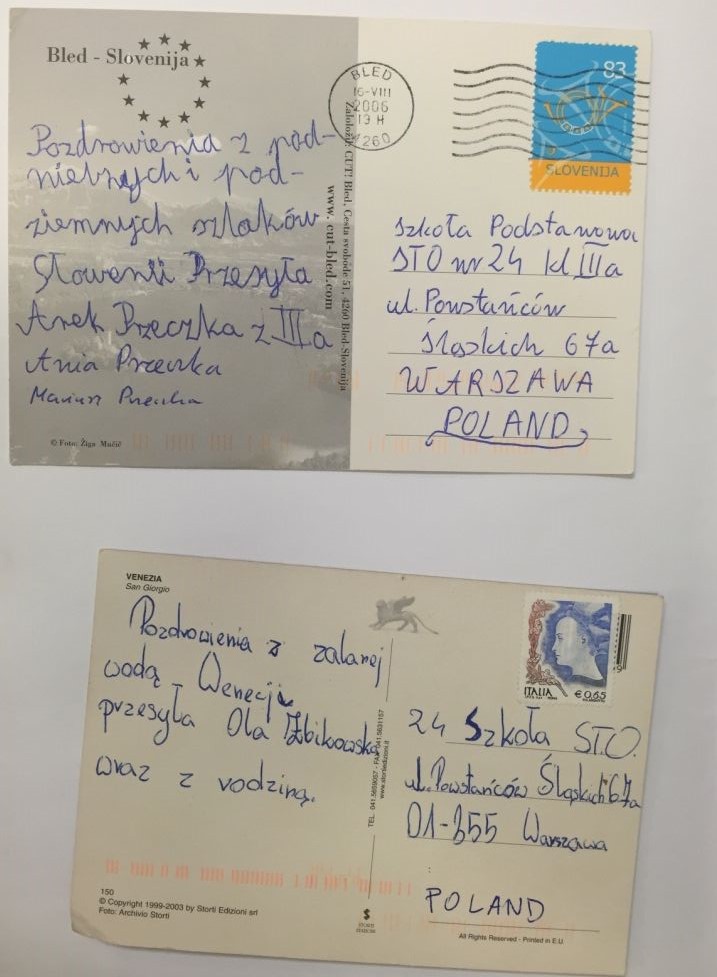 Bled - Slovenija
BLED
16-VIII
2006
19 H
4260
83
SLOVENIJA
Pozdrowienia z pod-
niebnych i pod-
ziemnych szlaków
Słowenii Przesyła
Arek Przeczka z IIIa
Ania Przeczka
Mariusz Przeczka
© Foto: Žiga Mučič
www.cut-bled.com
Založnik: CUT! Bled, Cesta svobode 51, 4260 Bled-Slovenija
Szkoła Podstawowa
STO nr 24 kl IIIa
ul. Powstańców
Śląskich 67a
WARSZAWA
POLAND
VENEZIA
San Giorgio
Pozdrowienia z zalanej
wodą Wenecji
przesyła Ola Zbikowska
wraz z rodziną.
150
© Copyright 1999-2003 by Storti Edizioni srl
Foto: Archivio Storti
www.stortiedizioni.it
ITALIA
€ 0,65
24 Szkoła STO.
ul. Powstańców Śląskich 67a
01-355 Warszawa
POLAND
All Rights Reserved - Printed in E.U.